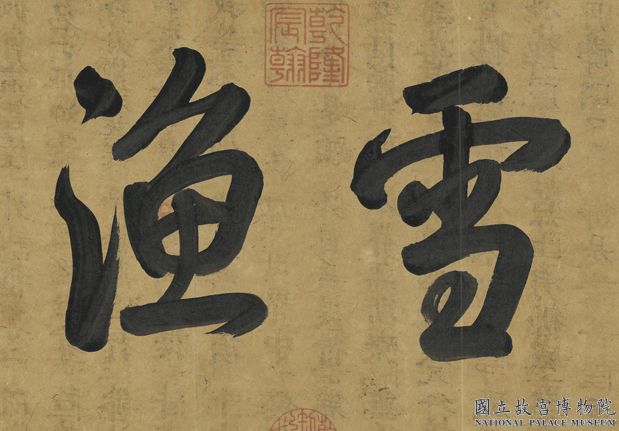 雪漁
乾隆
宸翰
國立故宮博物院
NATIONAL PALACE MUSEUM